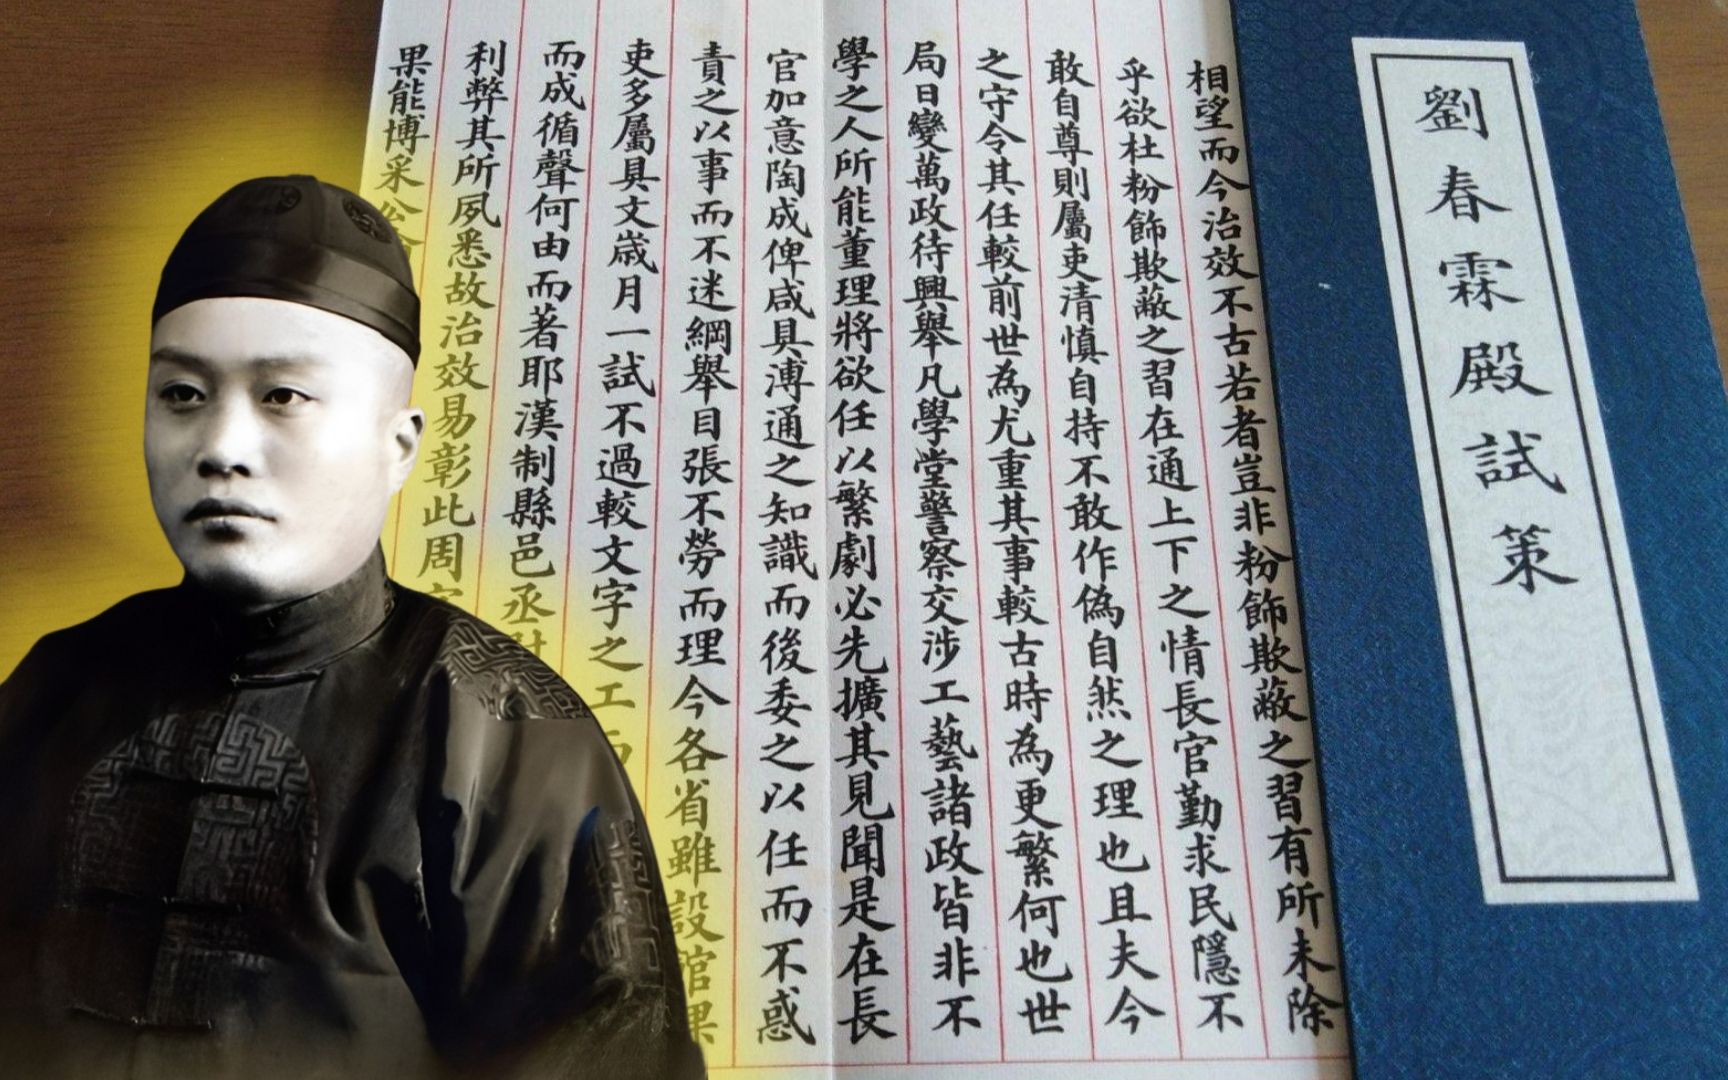 劉春霖殿試策
相望而今治效不古若者豈非粉飾欺蔽之習有所未除
乎欲杜粉飾欺蔽之習在通上下之情長官勤求民隱不
敢自尊則屬吏清慎自持不敢作偽自然之理也且夫今
之守令其任較前世為尤重其事較古時為更繁何也世
局日變萬政待興舉凡學堂警察交涉工藝諸政皆非不
學之人所能董理將欲任以繁劇必先擴其見聞是在長
官加意陶成俾咸具溥通之知識而後委之以任而不惑
責之以事而不迷綱舉目張不勞而理今各省雖設館
吏多屬具文歲月一試不過較文字之工
而成循聲何由而著耶漢制縣邑丞
利弊其所夙悉故治效易彰此周
果能博采